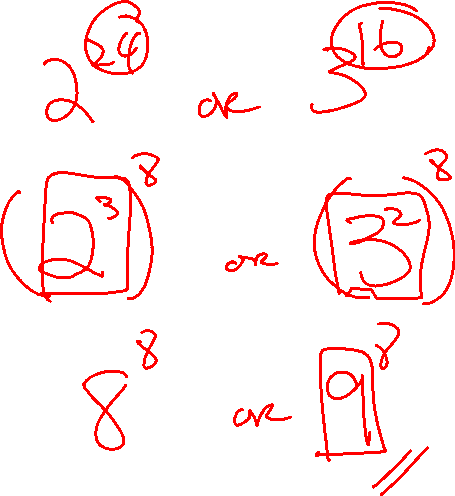 2^24 or 3^16
(2^3)^8 or (3^2)^8
8^8 or 9^8